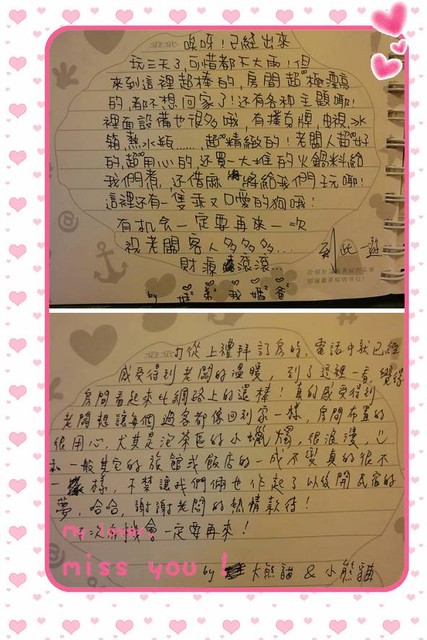 唉呀!已經出來
玩三天了,可惜都下大雨!但
來到這裡超棒的,房間超極漂亮
的,都不想回家了!还有各种主題呦!
裡面設備也很多哦,有撲克牌,电視,冰
箱,熱水瓶......超精緻的!老闆人超好
的,超用心的还買一大堆的火鍋料給
我們煮,还借麻將給我們玩呦!
這裡还有一隻乖又口愛的狗哦!
有机会一定要再來一次
祝老闆客人多多多...
財源滾滾...
by
打從上禮拜訂房時,電話中就已經
感受得到老闆的溫暖,到了這裡一看,覺得
房間看起來比網路上的還棒!真的感受得到
老闆想讓每個過客都像回到家一樣,房間布置的
很用心,尤其是泡茶區的小蠟燭,很浪漫,
和一般其它的旅館或飯店的一成不變真的很不
一樣,不禁讓我們倆也作起了以後開民宿的
夢,哈哈,謝謝老闆的熱情款待!
次有機會一定要再來!
My lover
miss you !
by 大熊貓 & 小熊貓